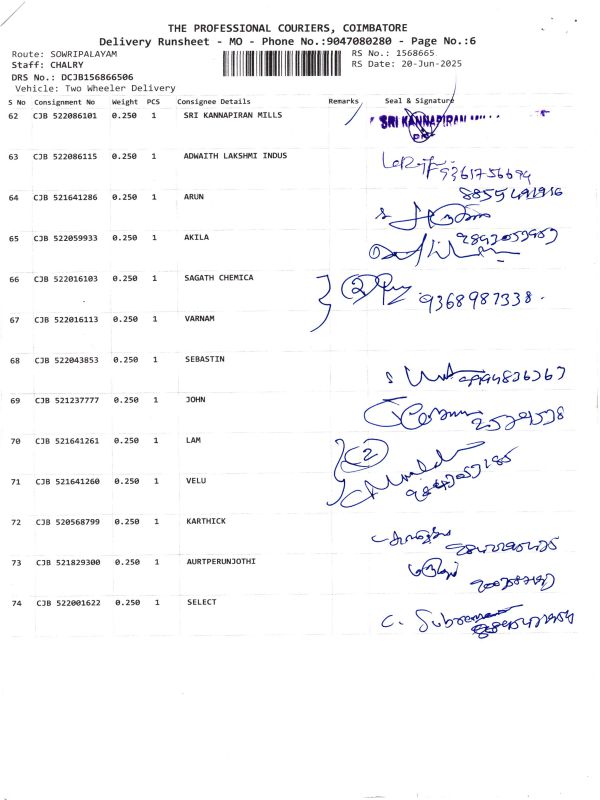 THE PROFESSIONAL COURIERS, COIMBATORE
Delivery Runsheet - MO - Phone No.:9047080280 - Page No.:6
Route: SOWRIPALAYAM RS No.: 1568665
Staff: CHALRY RS Date: 20-Jun-2025
DRS No.: DCJB156866506
Vehicle: Two Wheeler Delivery
S No Consignment No Weight PCS Consignee Details Remarks Seal & Signature
62 CJB 522086101 0.250 1 SRI KANNAPIRAN MILLS SRI KANNAPIRAN
63 CJB 522086115 0.250 1 ADWAITH LAKSHMI INDUS
9361756694
64 CJB 521641286 0.250 1 ARUN
65 CJB 522059933 0.250 1 AKILA
66 CJB 522016103 0.250 1 SAGATH CHEMICA 2
9368987338.
67 CJB 522016113 0.250 1 VARNAM
68 CJB 522043853 0.250 1 SEBASTIN
69 CJB 521237777 0.250 1 JOHN
70 CJB 521641261 0.250 1 LAM 2
71 CJB 521641260 0.250 1 VELU
72 CJB 520568799 0.250 1 KARTHICK
73 CJB 521829300 0.250 1 AURTPERUNJOTHI
74 CJB 522001622 0.250 1 SELECT